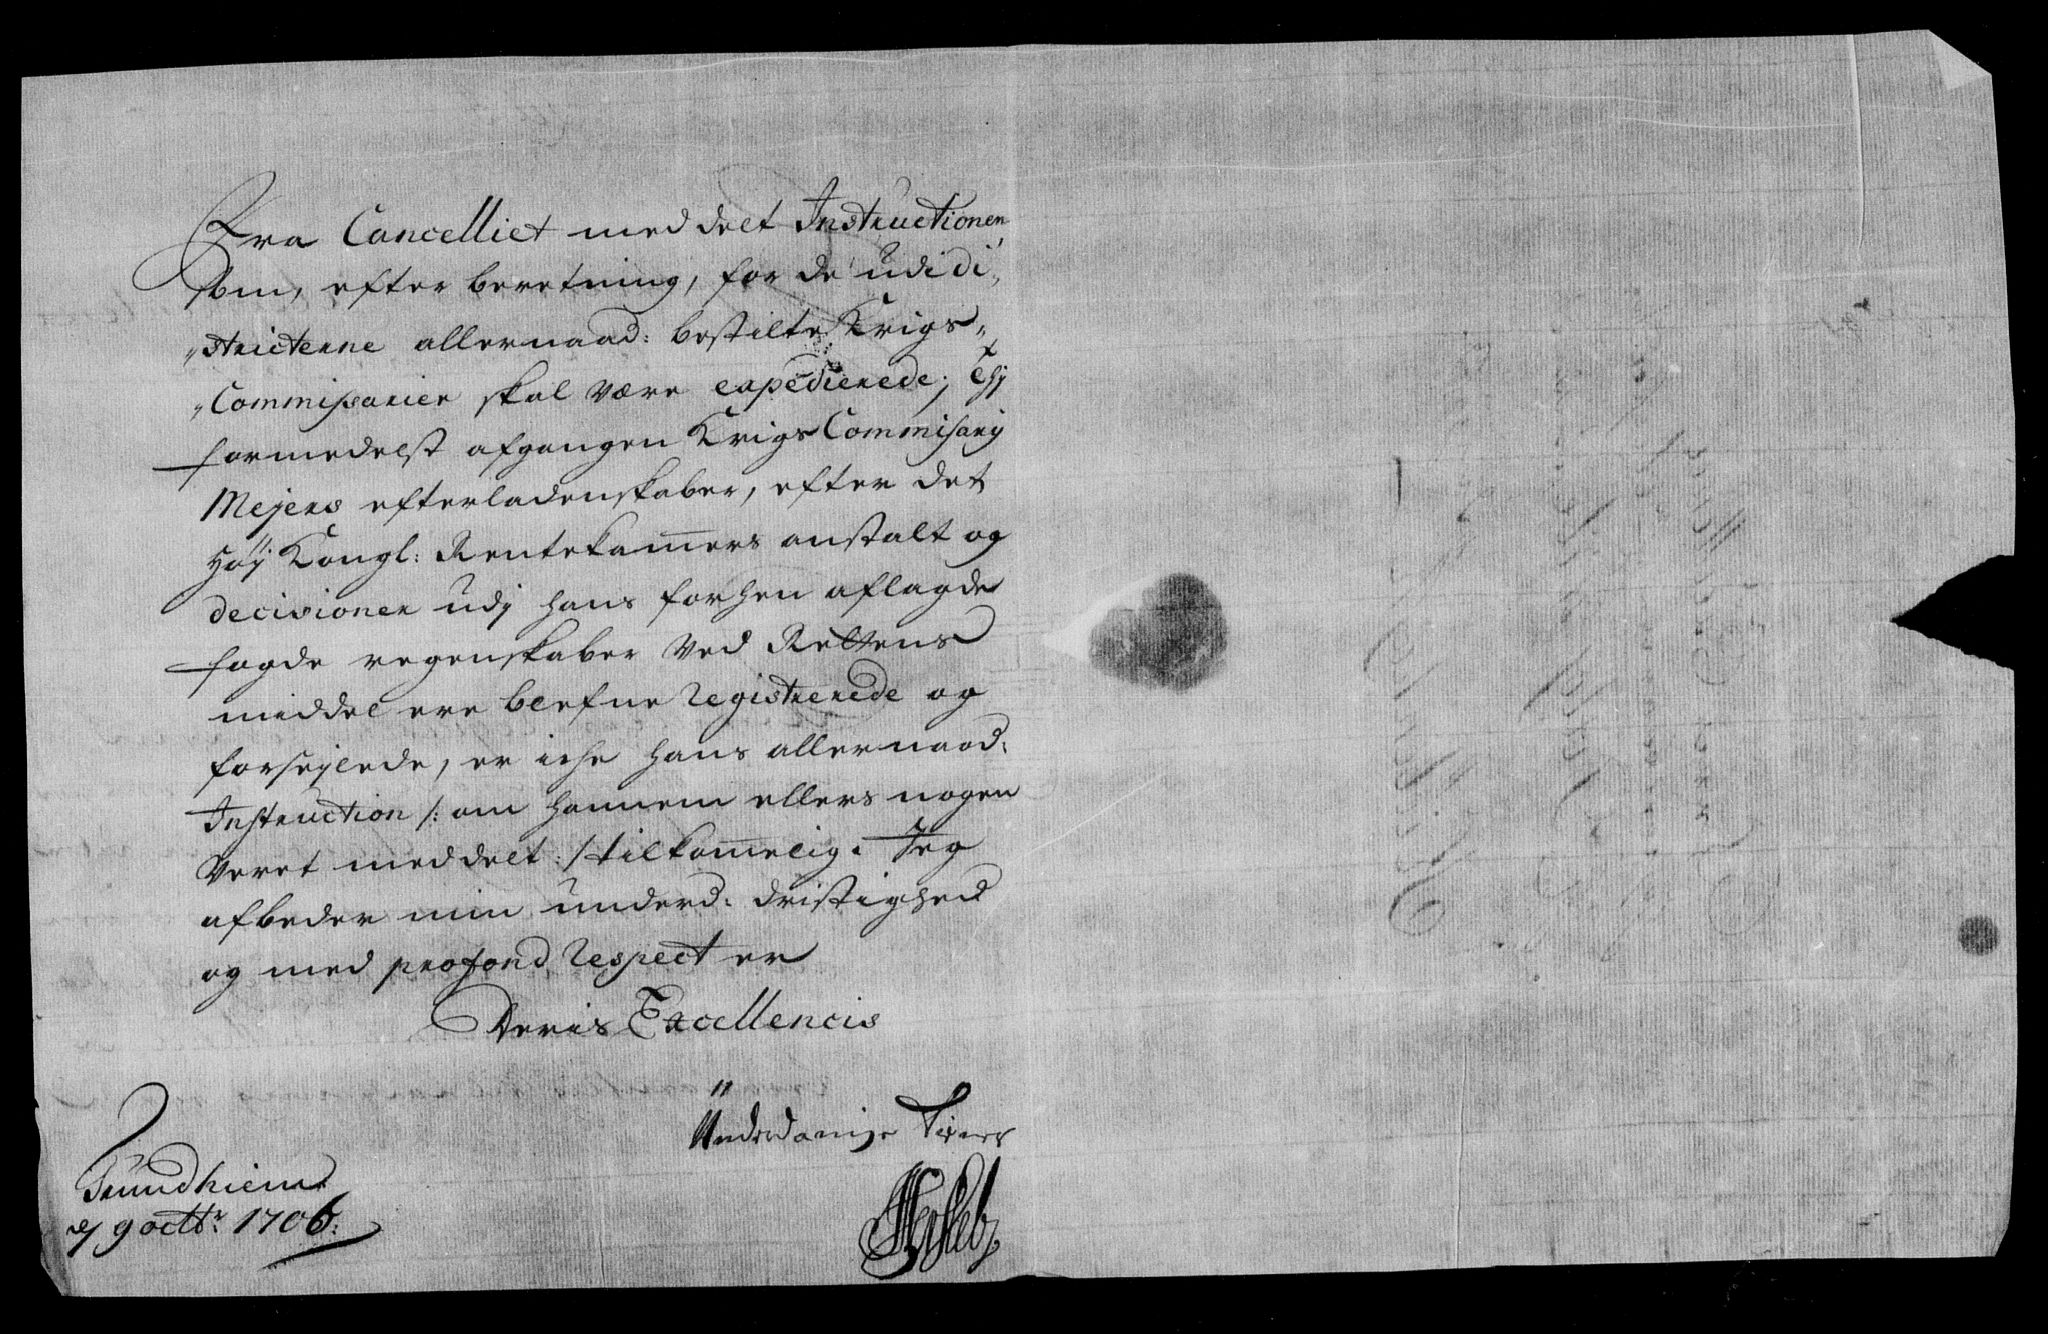 Fra Cancelliet meddelt Instructionen
som, efter beretning, for de udi di,
„stricterne allernaad: bestilte Krigs„
„Commissarier skal være expedierede; Thj
formedelst afgangen Krigs Commisarij
Mejers efterladenskaber, efter det
Høy Kongl: Rentekamers anstalt og
decisioner udj hans forhen aflagde
fogde regenskaber ved Rettens
middel ere blefne registrerede og
forseylede, er iche hans allernaad:
Instruction /: om hannem ellers nogen
veret meddelt :/ tilkomelig. Jeg
afbeder min underd: dristighed
og med profond respect er
Deris Excellencis
Underdanige Tiener
Trundhiem
d 9 octbr: 1706: